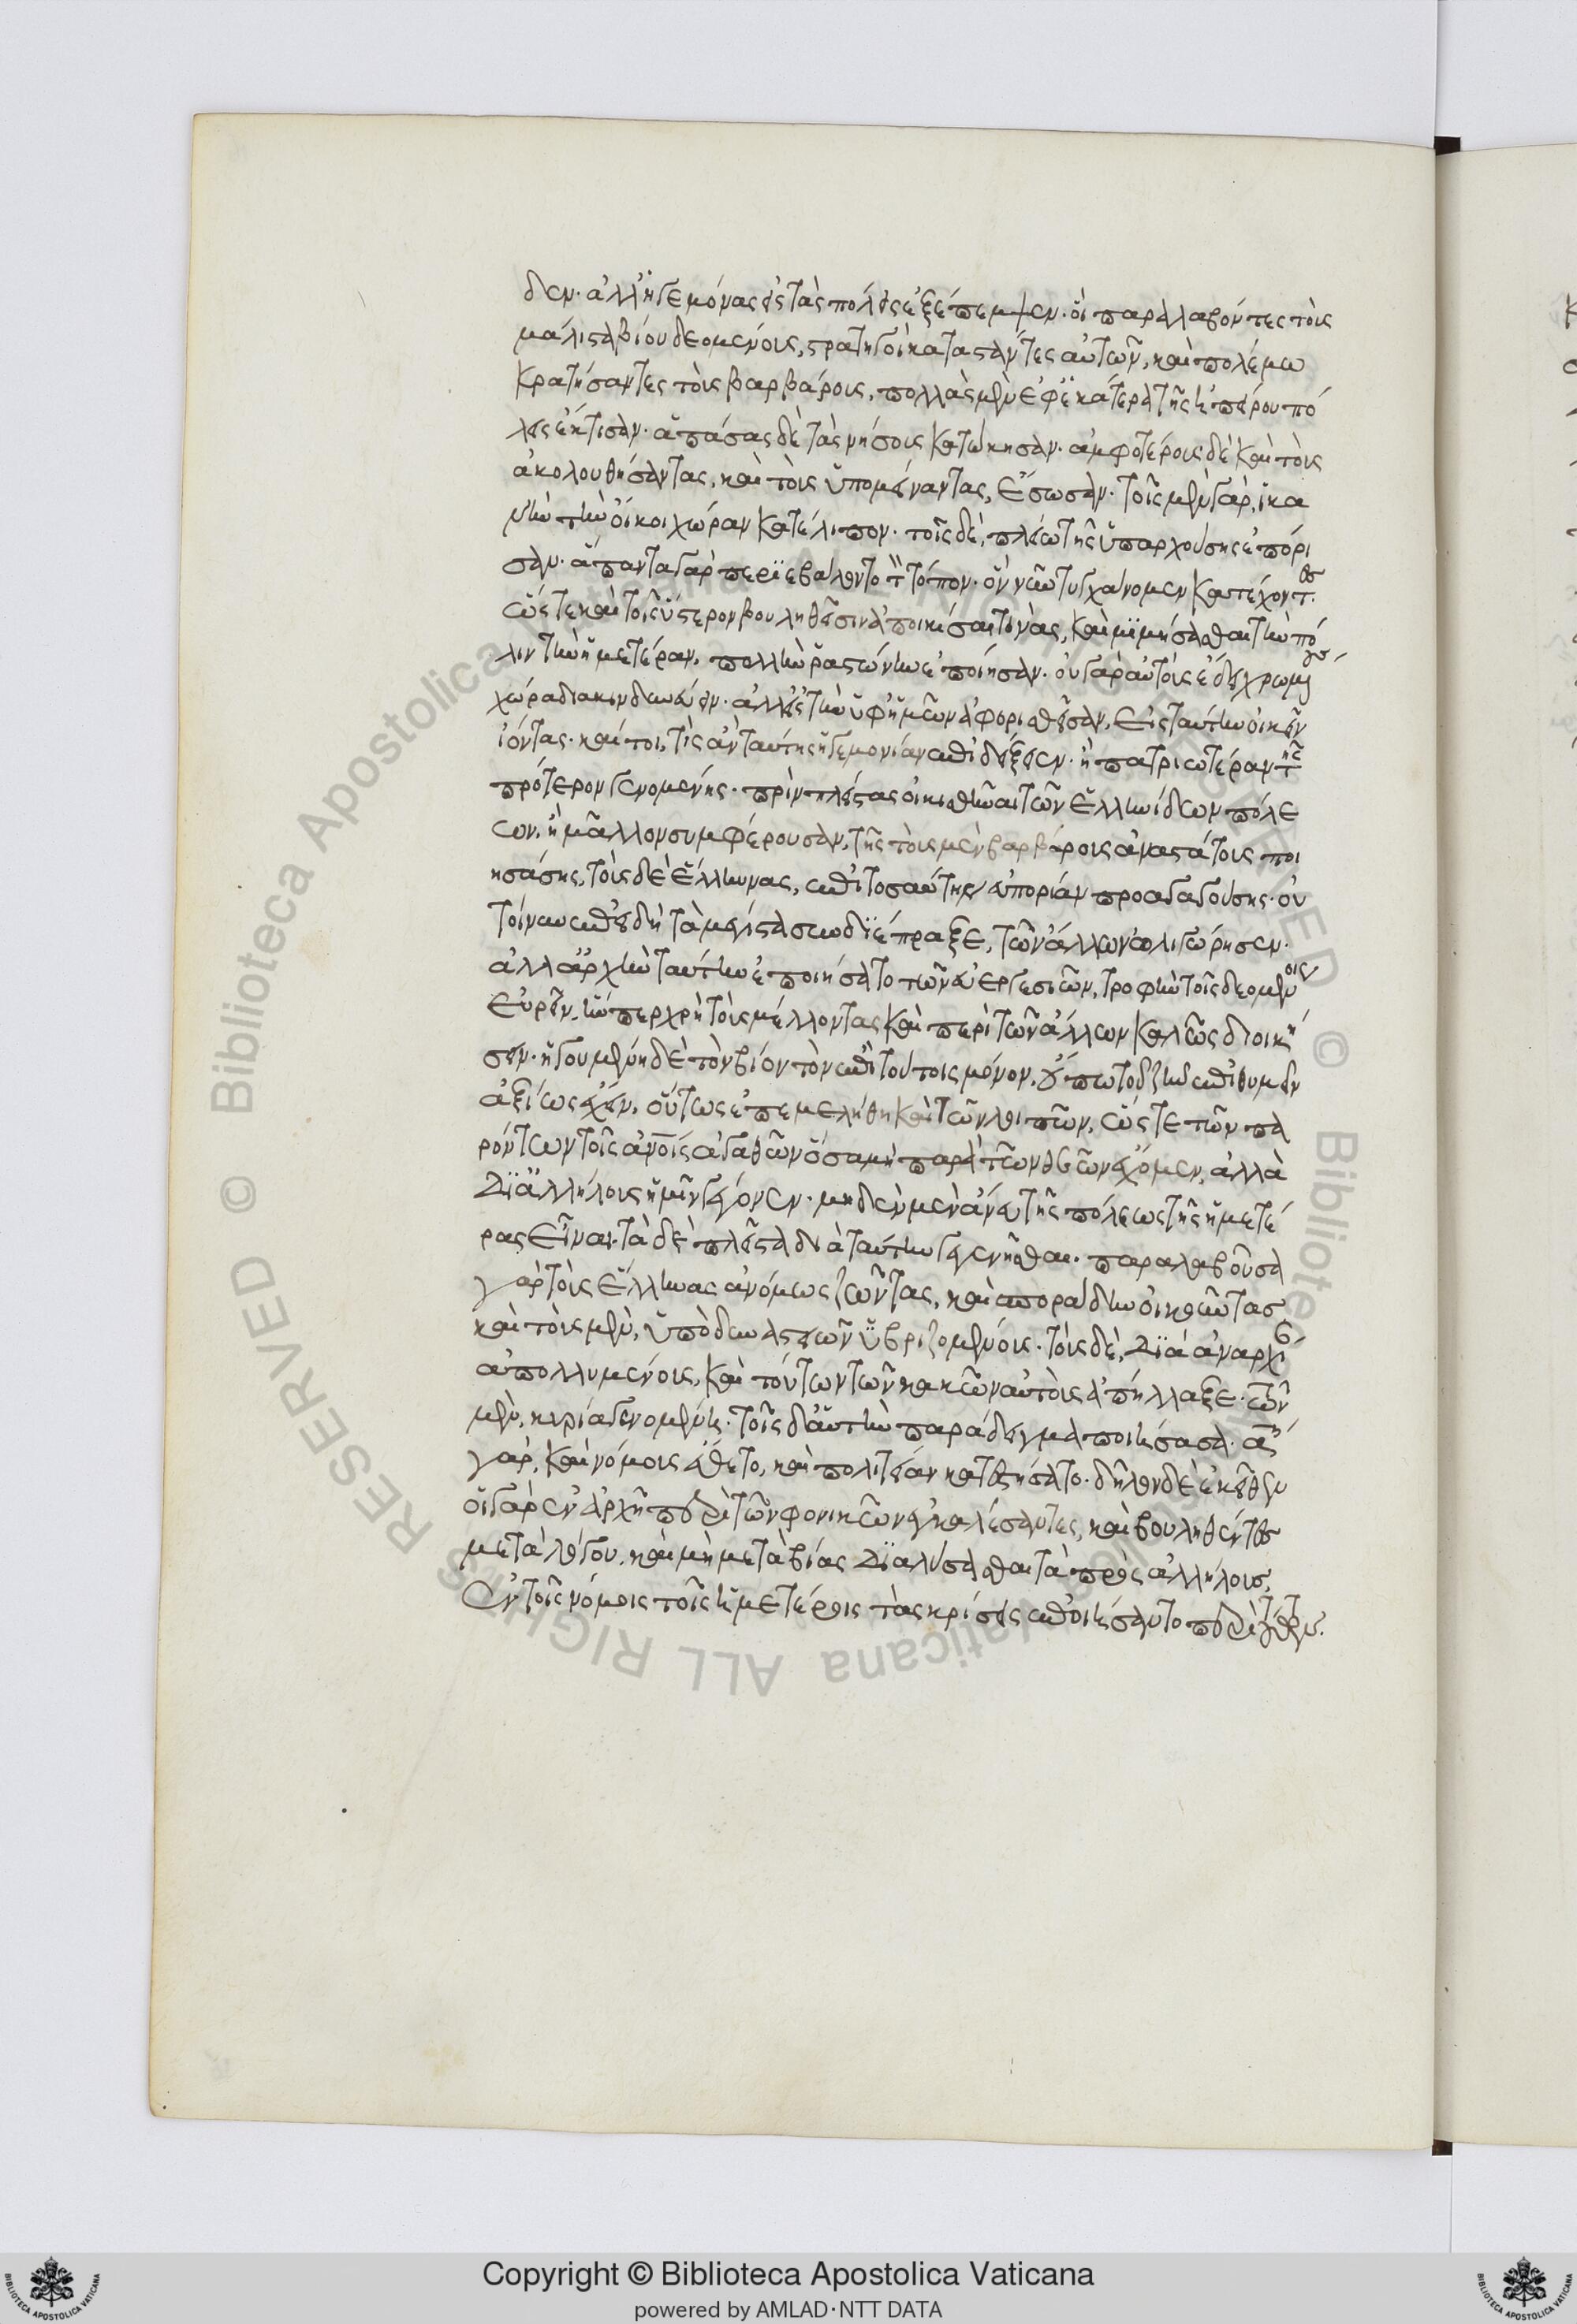 δεν· ἀλλ' ἡγεμόνας εἰς τὰς πόλεις ἐξέπεμψεν· οἳ παραλαβόντες τοὺς
μάλιστα βίου δεομένους, στρατηγοὶ καταστάντες αὐτῶν, καὶ πολέμω
κρατήσαντες τοὺς βαρβάρους, πολλὰς μὲν ἐφ' ἑκάτερα τῆς ἠπείρου πό
λεις ἔκτισαν· ἁπάσας δὲ τὰς νήσους κατώκησαν· ἀμφοτέρους δὲ καὶ τοὺς
ἀκολουθήσαντας, καὶ τοὺς ὑπομείναντας, ἔσωσαν· τοῖς μὲν γὰρ, ἱκα
νὴν τὴν οἴκοι χώραν κατέλιπον· τοῖς δὲ, πλείω τῆς ὑπαρχούσης ἐπόρι
σαν· ἅπαντα γὰρ περιεβάλλοντο τὸν τόπον· ὃν νῦν τυγχάνομεν κατέχοντες·
ὥστε καὶ τοῖς ὕστερον βουληθεῖσιν ἀποικίσαι τινὰς, καὶ μιμήσασθαι τὴν πό
λιν τὴν ἡμετέραν, πολλὴν ῥαστώνην ἐποίησαν· οὐ γὰρ αὐτοὺς ἔδει κτωμένους
χώραν διακινδυνεύειν· ἀλλ' εἰς τὴν ὑφ' ἡμῶν ἀφορισθεῖσαν, εἰς ταύτην οἰκεῖν
ἰόντας· καίτοι, τίς ἂν ταύτης ἡγεμονίαν ἐπιδείξειεν· ἢ πατριωτέραν τῆς
πρότερον γενομένης· πρὶν πλείστας οἰκισθῆναι τῶν ἑλληνίδων πόλε
ων, ἢ μᾶλλον συμφέρουσαν, τῆς τοὺς μὲν βαρβάρους ἀναστάτους ποι
ησάσης, τοὺς δὲ ἕλληνας, ἐπὶ τοσαύτης εὐπορίαν προαγαγούσης· οὐ
τοίνυν ἐπειδὴ τὰ μέγιστα συνδιέπραξε, τῶν ἄλλων ὠλιγώρησεν·
ἀλλ' ἀρχὴν ταύτην ἐποιήσατο τῶν εὐεργεσιῶν, τροφὴν τοῖς δεομένοις
εὑρεῖν, ἥνπερ χρὴ τοὺς μέλλοντας καὶ περὶ τῶν ἄλλων καλῶς διοική
σειν· ἡγουμένη δὲ τὸν βίον τὸν ἐπὶ τούτοις μόνον, οὔπω τὸ ζῆν ἐπιθυμεῖν
ἀξίως ἔχειν, οὕτως ἐπεμελήθη καὶ τῶν λοιπῶν, ὥστε τῶν πα
ρόντων τοῖς ἀνοις ἀγαθῶν ὅσα μὴ παρὰ τῶν θεῶν ἔχομεν, ἀλλὰ
δι' ἀλλήλους ἡμῖν γέγονεν· μηδὲν μὲν ἄνευ τῆς πόλεως τῆς ἡμετέ
ρας εἶναι. τὰ δὲ πλεῖστα διὰ ταύτην γεγενῆσθαι· παραλαβοῦσα
γὰρ τοὺς ἕλληνας ἀνόμως ζῶντας, καὶ σποράδην οἰκοῦντας
καὶ τοὺς μὲν, ὑπὸ δυναστειῶν ὑβριζομένους· τοὺς δὲ, δι' ἀναρχίαν
ἀπολλυμένους, καὶ τούτων τῶν κακῶν αὐτοὺς ἀπήλλαξε· τῶν
μὲν, κυρία γενομένη· τοῖς δ' αὑτὴν παράδειγμα ποιήσασα· πρώτη
γὰρ, καὶ νόμους ἔθετο, καὶ πολιτείαν κατεστήσατο· δῆλον δὲ ἐκεῖθεν
οἱ γὰρ ἐν ἀρχῆ περὶ τῶν φονικῶν ἐγκαλέσαντες, καὶ βουληθέντες
μετὰ λόγου, καὶ μὴ μετὰ βίας διαλύσασθαι τὰ πρὸς ἀλλήλους,
ἐν τοῖς νόμοις τοῖς ἡμετέροις τὰς κρίσεις ἐποιήσαντο περὶ τούτων.
© Biblioteca Apostolica Vaticana ALL RIGHTS RESERVED
Copyright © Biblioteca Apostolica Vaticana
powered by AMLAD·NTT DATA